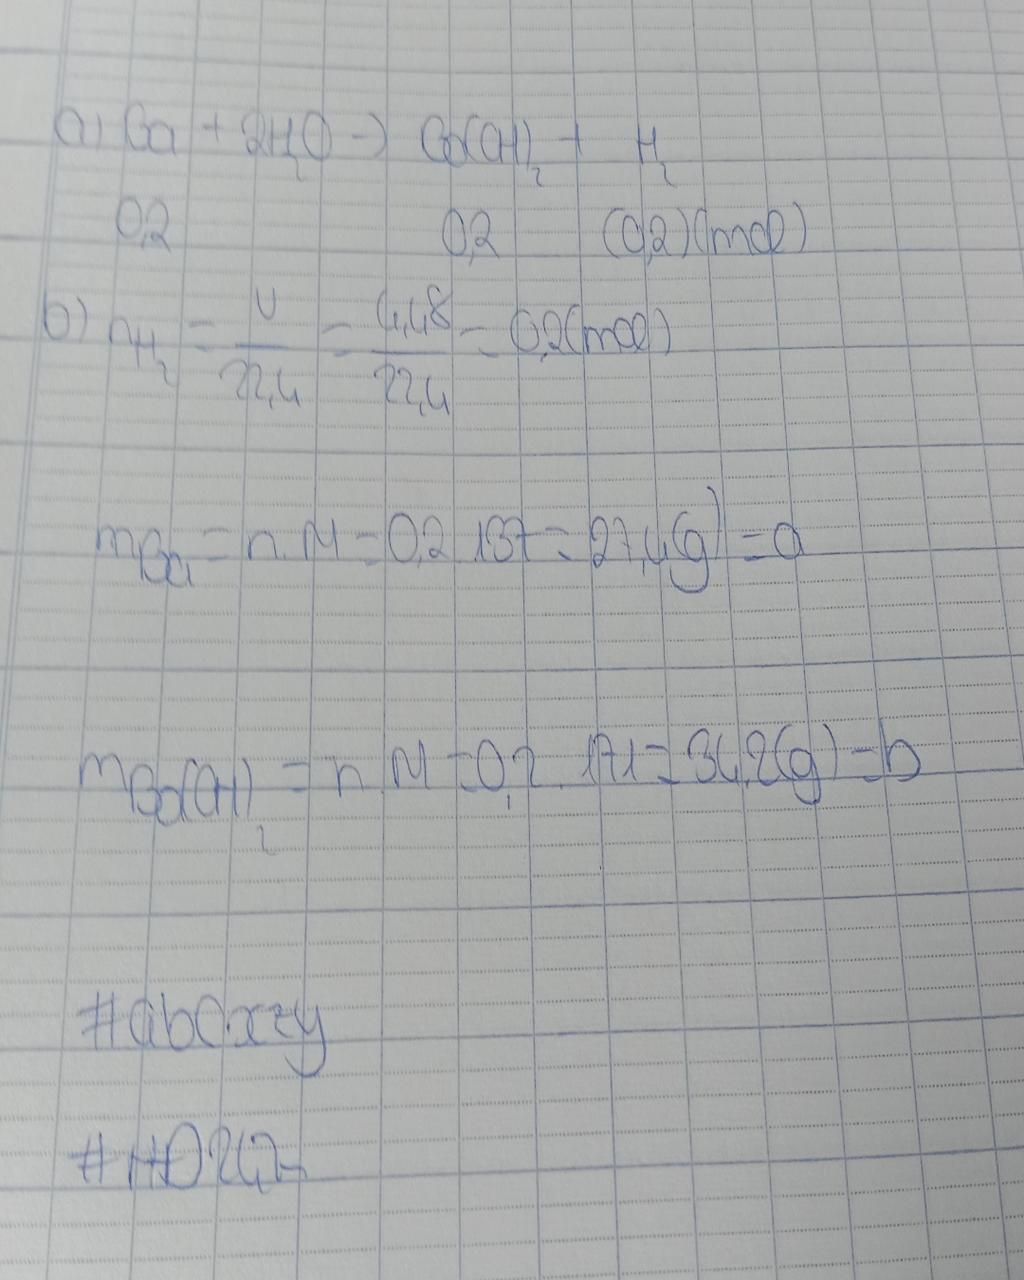 a) Ba + 2H₂O → Ba(OH)₂ + H₂
0,2 0,2 (0,2)(mol)
b) nH₂ = V/22,4 = 4,48/22,4 = 0,2(mol)
mBa = n.M = 0,2.137 = 27,4(g) = a
mBa(OH)₂ = n.M = 0,2.171 = 34,2(g) = b
#abcxzy